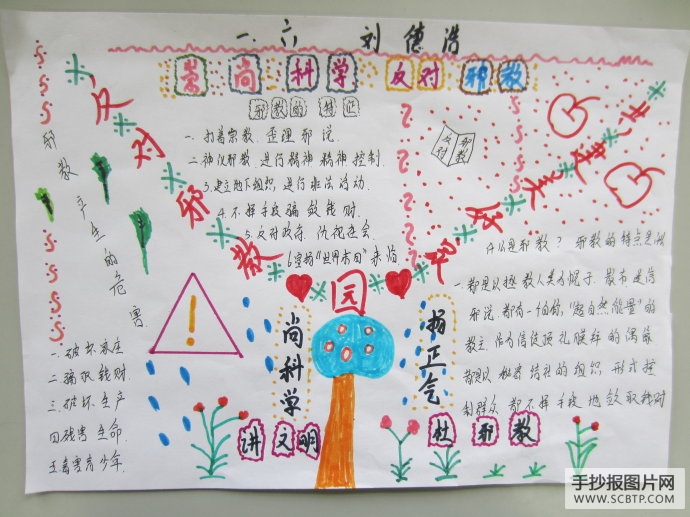 一.六 刘德浩
崇尚科学 反对邪教
邪教的特征
一.打着宗教.歪理邪说.
二.神汉邪教.进行精神精神控制.
3.建立地下组织,进行非法活动.
4.不择手段骗敛钱财.
5.反对政府.仇视社会
6.宣扬“世界末日”来临
反对邪教
园
反对
邪教
邪教产生的危害
一.破坏家庭
二.骗取钱财.
三.破坏生产
四.残害生命.
五.毒害青少年.
!
尚科学
讲文明
扬正气
杜邪教
什么是邪教?邪教的特点是什
一.都是以拯救人类为幌子.散布迷信
邪说.都有一自称“超自然能量”的
教主作为信徒顶礼膜拜的偶像
都以秘密结社的组织形式控
制群众都不择手段地敛取钱财
手抄报图片网
WWW.SCBTP.COM